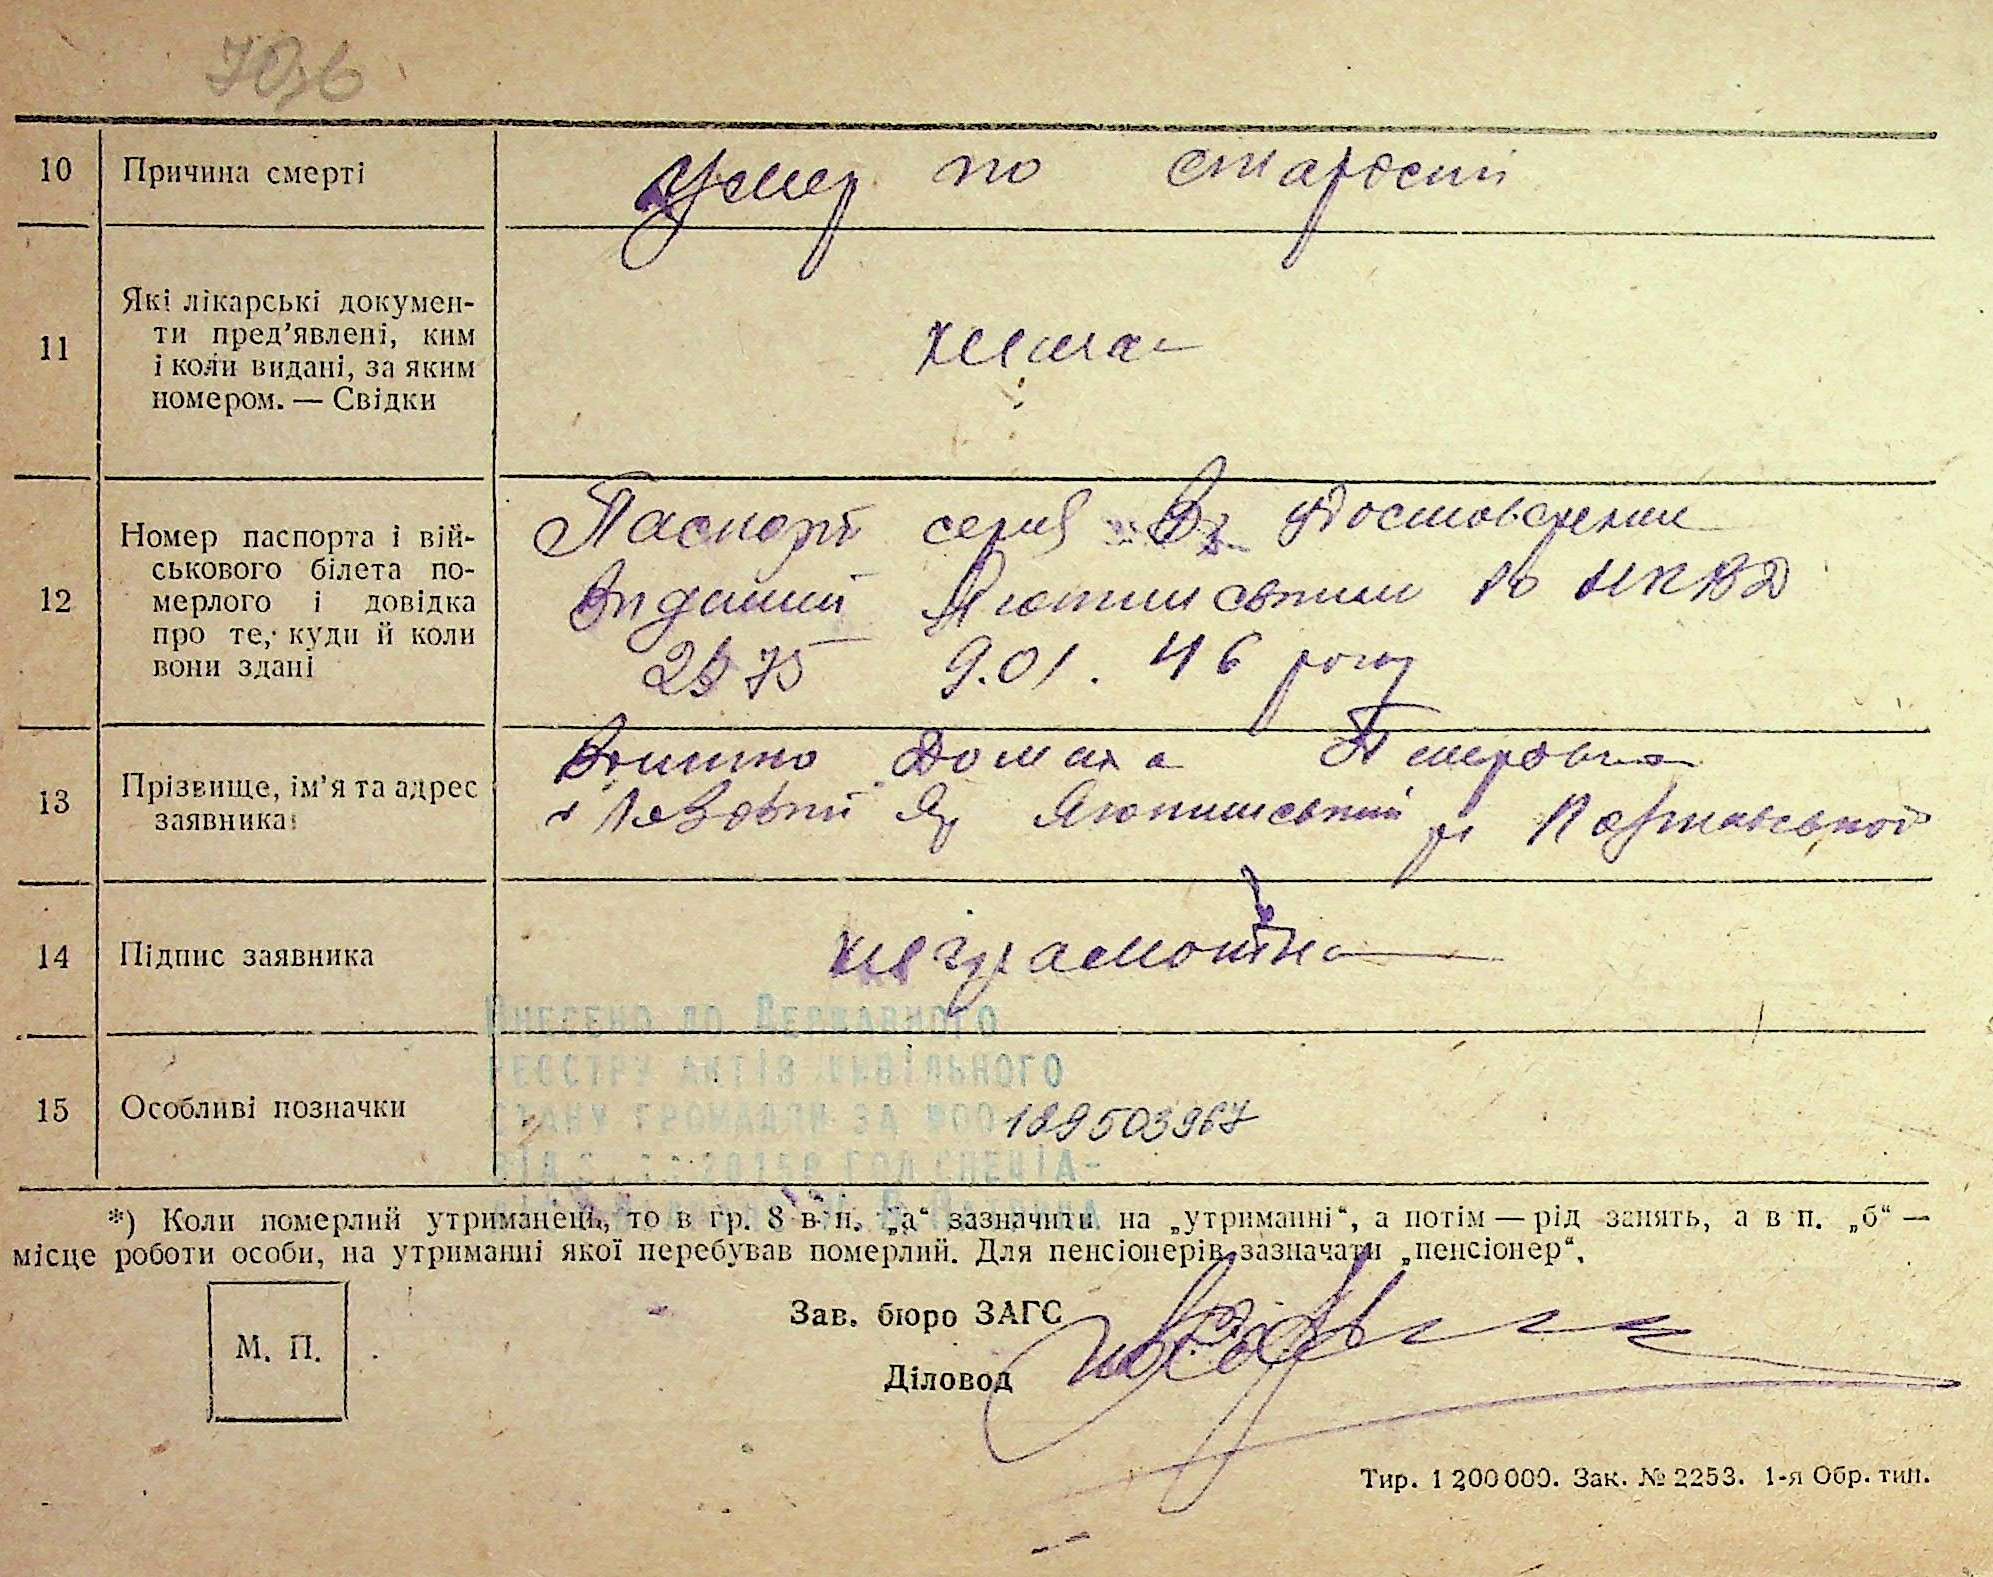 10 Причина смерті
Умер по старості
11 Які лікарські докумен-
ти пред’явлені, ким
і коли видані, за яким
номером. — Свідки
нема
12 Номер паспорта і вій-
ськового білета по-
мерлого і довідка
про те, куди й коли
вони здані
Паспорт серия
НКВД
9.01. 46 року
13 Прізвище, ім’я та адрес
заявника
Домаха Петровна
Яр
14 Підпис заявника
неграмотна
Внесено до Державного
реєстру актів цивільного
стану громадян за №00
15 Особливі позначки
189503967
*) Коли померлий утриманець, то в гр. 8 в п. „а“ зазначити на „утриманні“, а потім — рід занять, а в п. „б“ —
місце роботи особи, на утриманні якої перебував померлий. Для пенсіонерів зазначати „пенсіонер“.
М. П.
Зав. бюро ЗАГС
Діловод
Тир. 1 200 000. Зак. № 2253. 1-я Обр. тип.